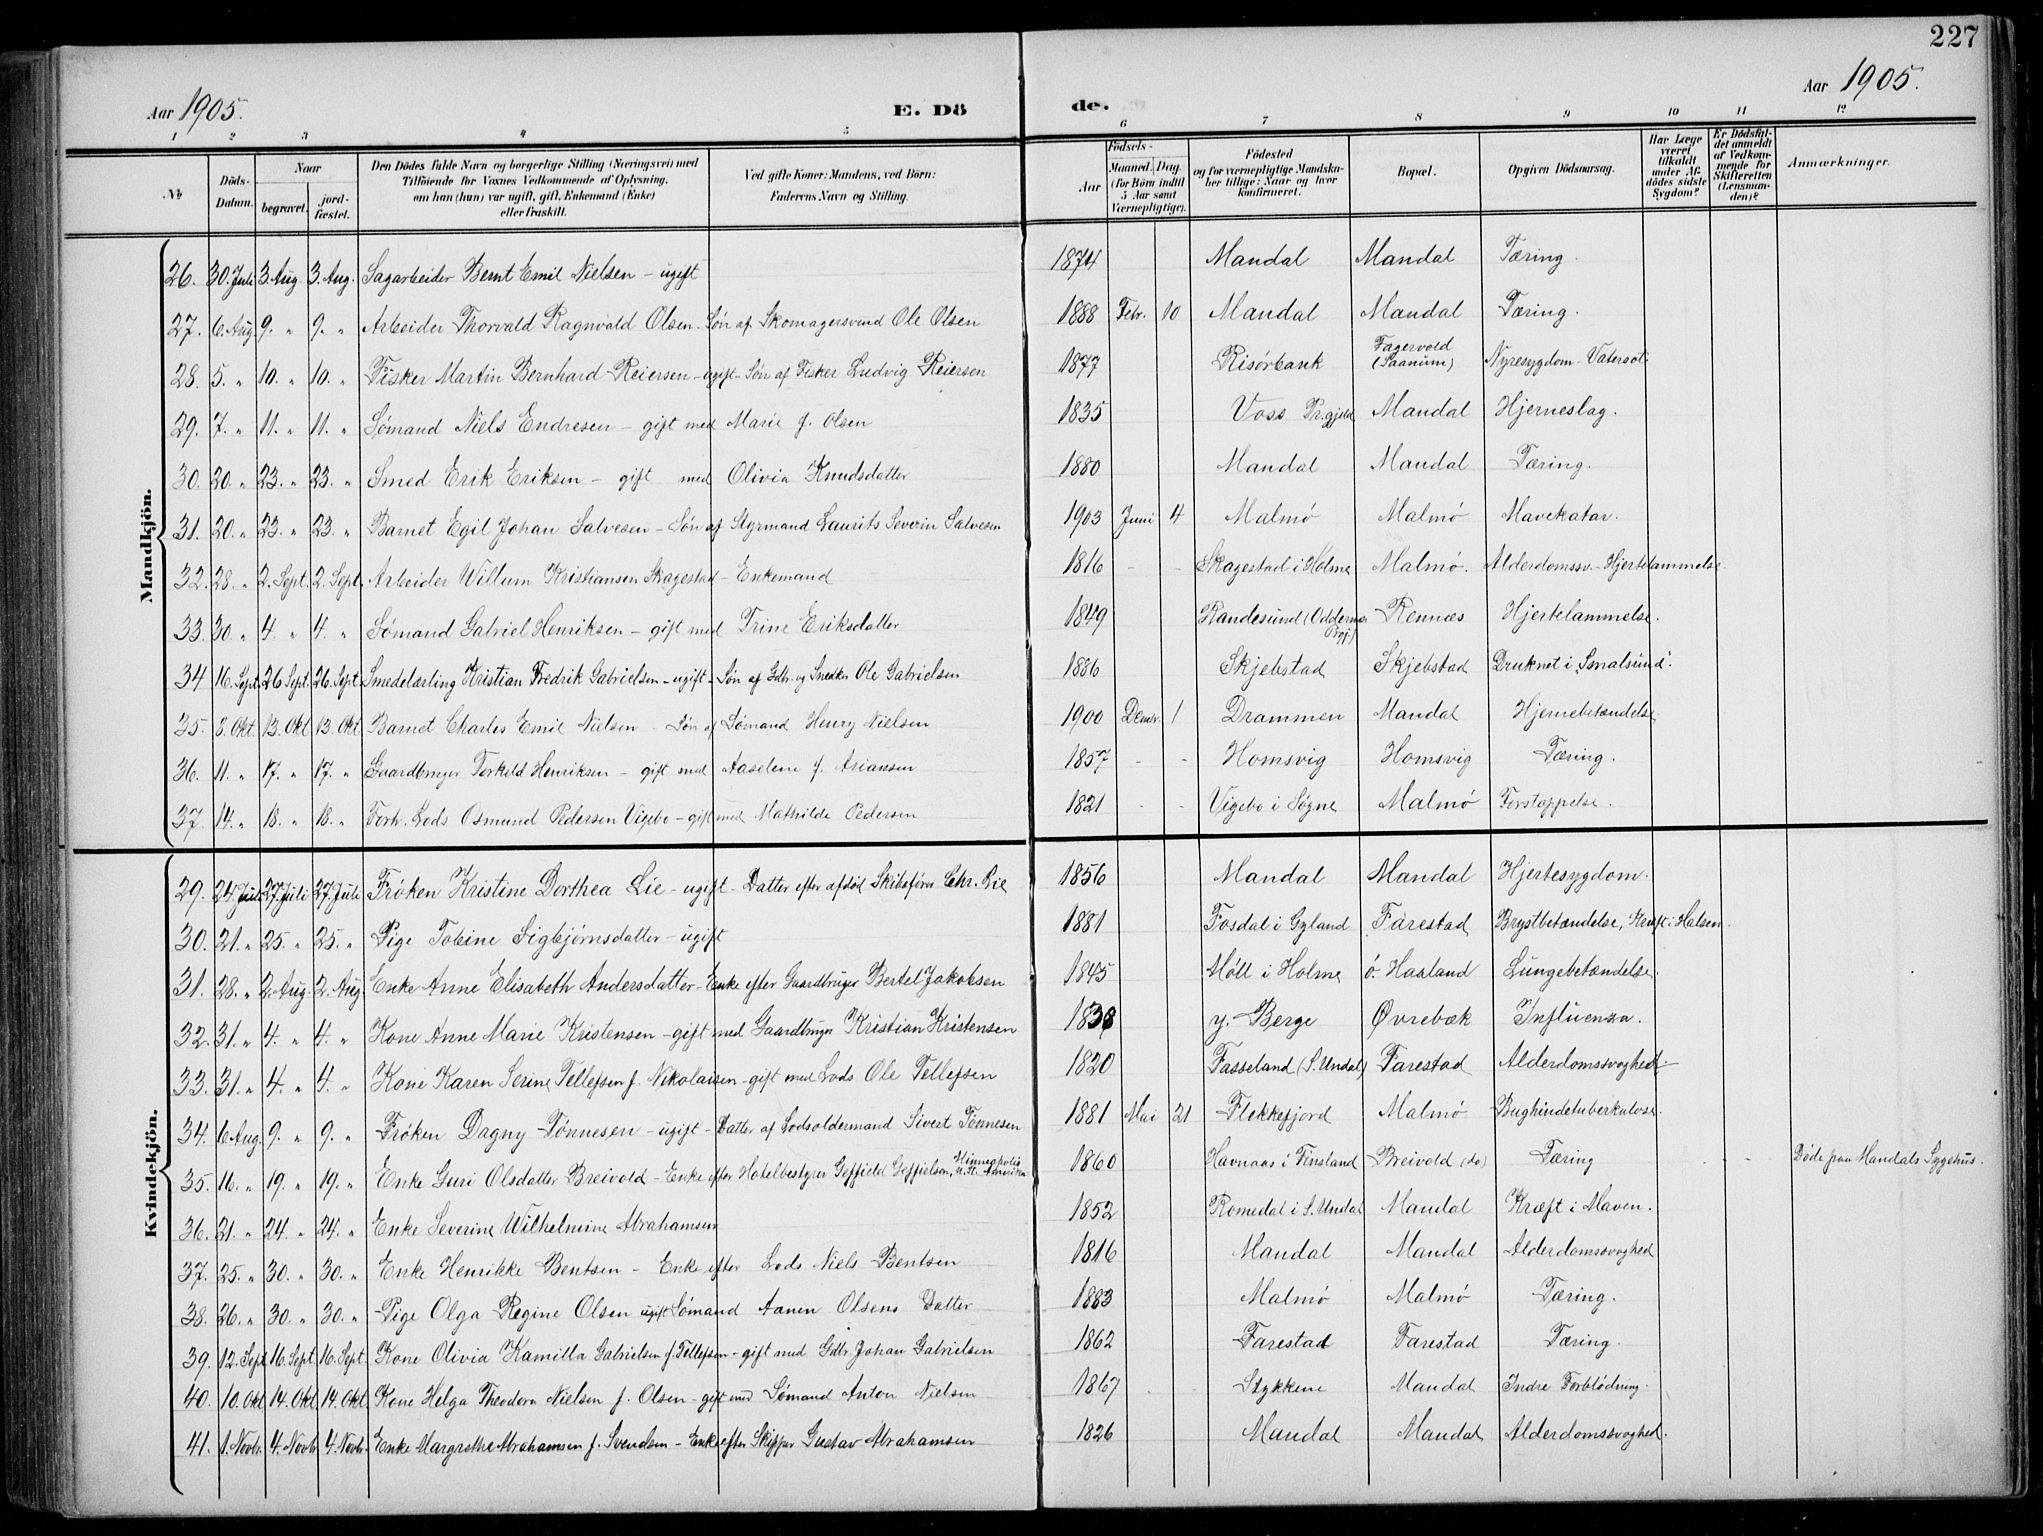 227
Aar 1905. E. Dö de. Aar 1905.
1 2 3 4 5 6 7 8 9 10 11 12
No. Döds-Datum. Naar begravet. jord-fæstet. Den Dödes fulde Navn og borgerlige Stilling (Næringsvei) med Tilföiende for Voxnes Vedkommende af Oplysning, om han (hun) var ugift, gift, Enkemand (Enke) eller fraskilt. Ved gifte Koner: Mandens, ved Börn: Faderens Navn og Stilling. Födsels- Aar Maaned. Dag. (for Börn indtil 5 Aar samt Værnepligtige). Födested og for værnepligtige Mandskaber tillige: Naar og hvor konfirmeret. Bopæl. Opgiven Dödsaarsag. Har Læge været tilkaldt under Afdödes sidste Sygdom? Er Dödsfaldet anmeldt af Vedkommende for Skifteretten (Lensmanden)? Anmærkninger.
Mandkjön.
26. 30. Juli 3. Aug. 3. Aug. Sagarbeider Bernt Emil Nielsen - ugift 1874 Mandal Mandal Tæring.
27. 6. Aug. 9. " 9. " Arbeider Thorvald Ragnvald Olsen. Søn af Skomagersvend Ole Olsen 1888 Febr. 10 Mandal Mandal Tæring.
28. 5. " 10. " 10. " Fisker Martin Bernhard Reiersen - ugift - Søn af Fisker Ludvig Reiersen 1877 Risørbank Fagervold (Saanum) Nyresygdom - Vatersot
29. 7. " 11. " 11. " Sømand Niels Endresen - gift med Marie f. Olsen 1835 Voss Prgjeld Mandal Hjerneslag.
30. 20. " 23. " 23. " Smed Erik Eriksen - gift med Olivia Knudsdatter 1880 Mandal Mandal Tæring.
31. 20. " 23. " 23. " Barnet Egil Johan Salvesen - Søn af Styrmand Laurits Severin Salvesen 1903 Juni 4 Malmø Malmø Mavekatar.
32. 28. " 2. Sept. 2. Sept. Arbeider Willum Kristiansen Skagestad - Enkemand 1816 - - Skagestad i Holme Malmø. Alderdomssv. - Hjertelammelse.
33. 30. " 4. " 4. " Sømand Gabriel Henriksen - gift med Trine Eriksdatter 1849 Randesund (Oddernes Prgj.) Rennæs Hjertelammelse.
34 16. Sept. 26 Sept. 26. Sept Smedelærling Kristian Fredrik Gabrielsen - ugift - Søn af Gdbr. og Snedker Ole Gabrielsen 1886 Skjebstad Skjebstad Druknet i "Smalsund".
35. 8. Okt. 13. Okt 13. Okt Barnet Charles Emil Nielsen - Søn af Sømand Henry Nielsen 1900 Decmbr. 1 Drammen Mandal Hjernebetændelse
36. 11. " 17. " 17. " Gaardbruger Torkeld Henriksen - gift med Aaselene f. Ariansen 1857 - - Homsvig Homsvig Tæring.
37. 14. " 18. " 18. " Forh. Lods Osmund Pedersen Vigebo - gift med Mathilde Pedersen 1821 - - Vigebo i Søgne Malmø Forstoppelse.
Kvindekjön.
29. 24. Juli 27. Juli 27. Juli Frøken Kristine Dorthea Lie - ugift - Datter efter afdød Skibsfører Chr. Lie 1856 Mandal Mandal Hjertesygdom.
30. 21. " 25. " 25. " Pige Tobine Sigbjørnsdatter - ugift 1881 Fosdal i Gyland Farestad Brystbetændelse, Kræft i Halsen.
31. 28. " 2. Aug. 2. Aug. Enke Anne Elisabeth Andersdatter - Enke efter Gaardbruger Bertel Jakobsen 1845 Møll i Holme ö. Haaland Lungebetændelse.
32. 31. " 4. " 4. " Kone Anne Marie Kristensen - gift med Gaardbruger Kristian Kristensen 1838 y. Berge Øvrebæk Influenza.
33. 31. " 4. " 4. " Kone Karen Serine Tellefsen f. Nikolaisen - gift med Lods Ole Tellefsen 1820 Fasseland (S. Undal) Farestad Alderdomssvaghed
34. 6. Aug. 9. " 9. " Frøken Dagny Tønnesen - ugift - Datter af Lodsoldermand Sivert Tønnesen 1881 Mai 21 Flekkefjord Malmø Bughindetuberkulose.
35. 16. " 19. " 19. " Enke Guri Olsdatter Breivold - Enke efter Hotelbestyrer Geffield Geffielsen, Minneapolis N. St. Amerika 1860 Havnaas i Finsland Breivold (do) Tæring - - Døde paa Mandals Sygehus.
36. 21. " 24. " 24. " Enke Severine Wilhelmine Abrahamsen 1852 Romedal i S. Undal Mandal Kræft i Maven.
37. 25. " 30. " 30. " Enke Henrikke Bentsen - Enke efter Lods Niels Bentsen 1816 Mandal Mandal Alderdomssvaghed
38. 26. " 30. " 30. " Pige Olga Regine Olsen ugift Sømand Aanen Olsens Datter 1883 Malmø Malmø Tæring.
39. 12. Sept. 16. Sept. 16. Sept. Kone Olivia Kamilla Gabrielsen f. Tellefsen - gift med Gdbr. Johan Gabrielsen 1862 Farestad Farestad Tæring.
40. 10. Okt 14. Okt 14. Okt. Kone Helga Theodora Nielsen f. Olsen - gift med Sømand Anton Nielsen 1867 Stykkene Mandal Indre Forblødning.
41. 1. Novbr. 4. Novbr 4. Novbr. Enke Margrethe Abrahamsen f. Svendsen - Enke efter Skipper Gustav Abrahamsen 1826 Mandal Mandal Alderdomssvaghed.